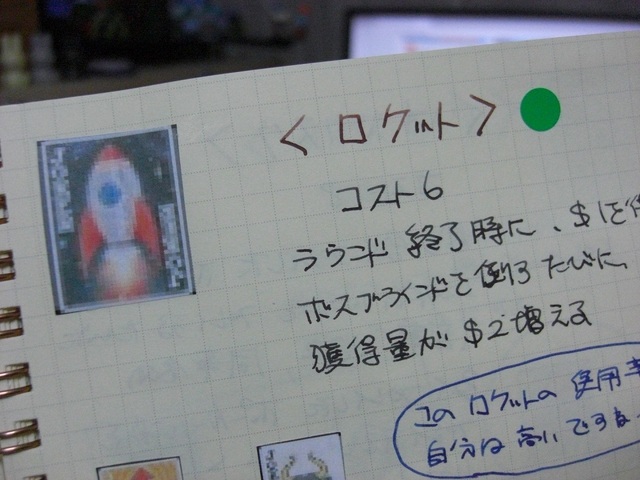 <ロケット>
コスト6
ラウンド 終了時に、$1を
ボスブラインドを倒すたびに、
獲得量が $2増える
このロケットの 使用率
自分は高いですね